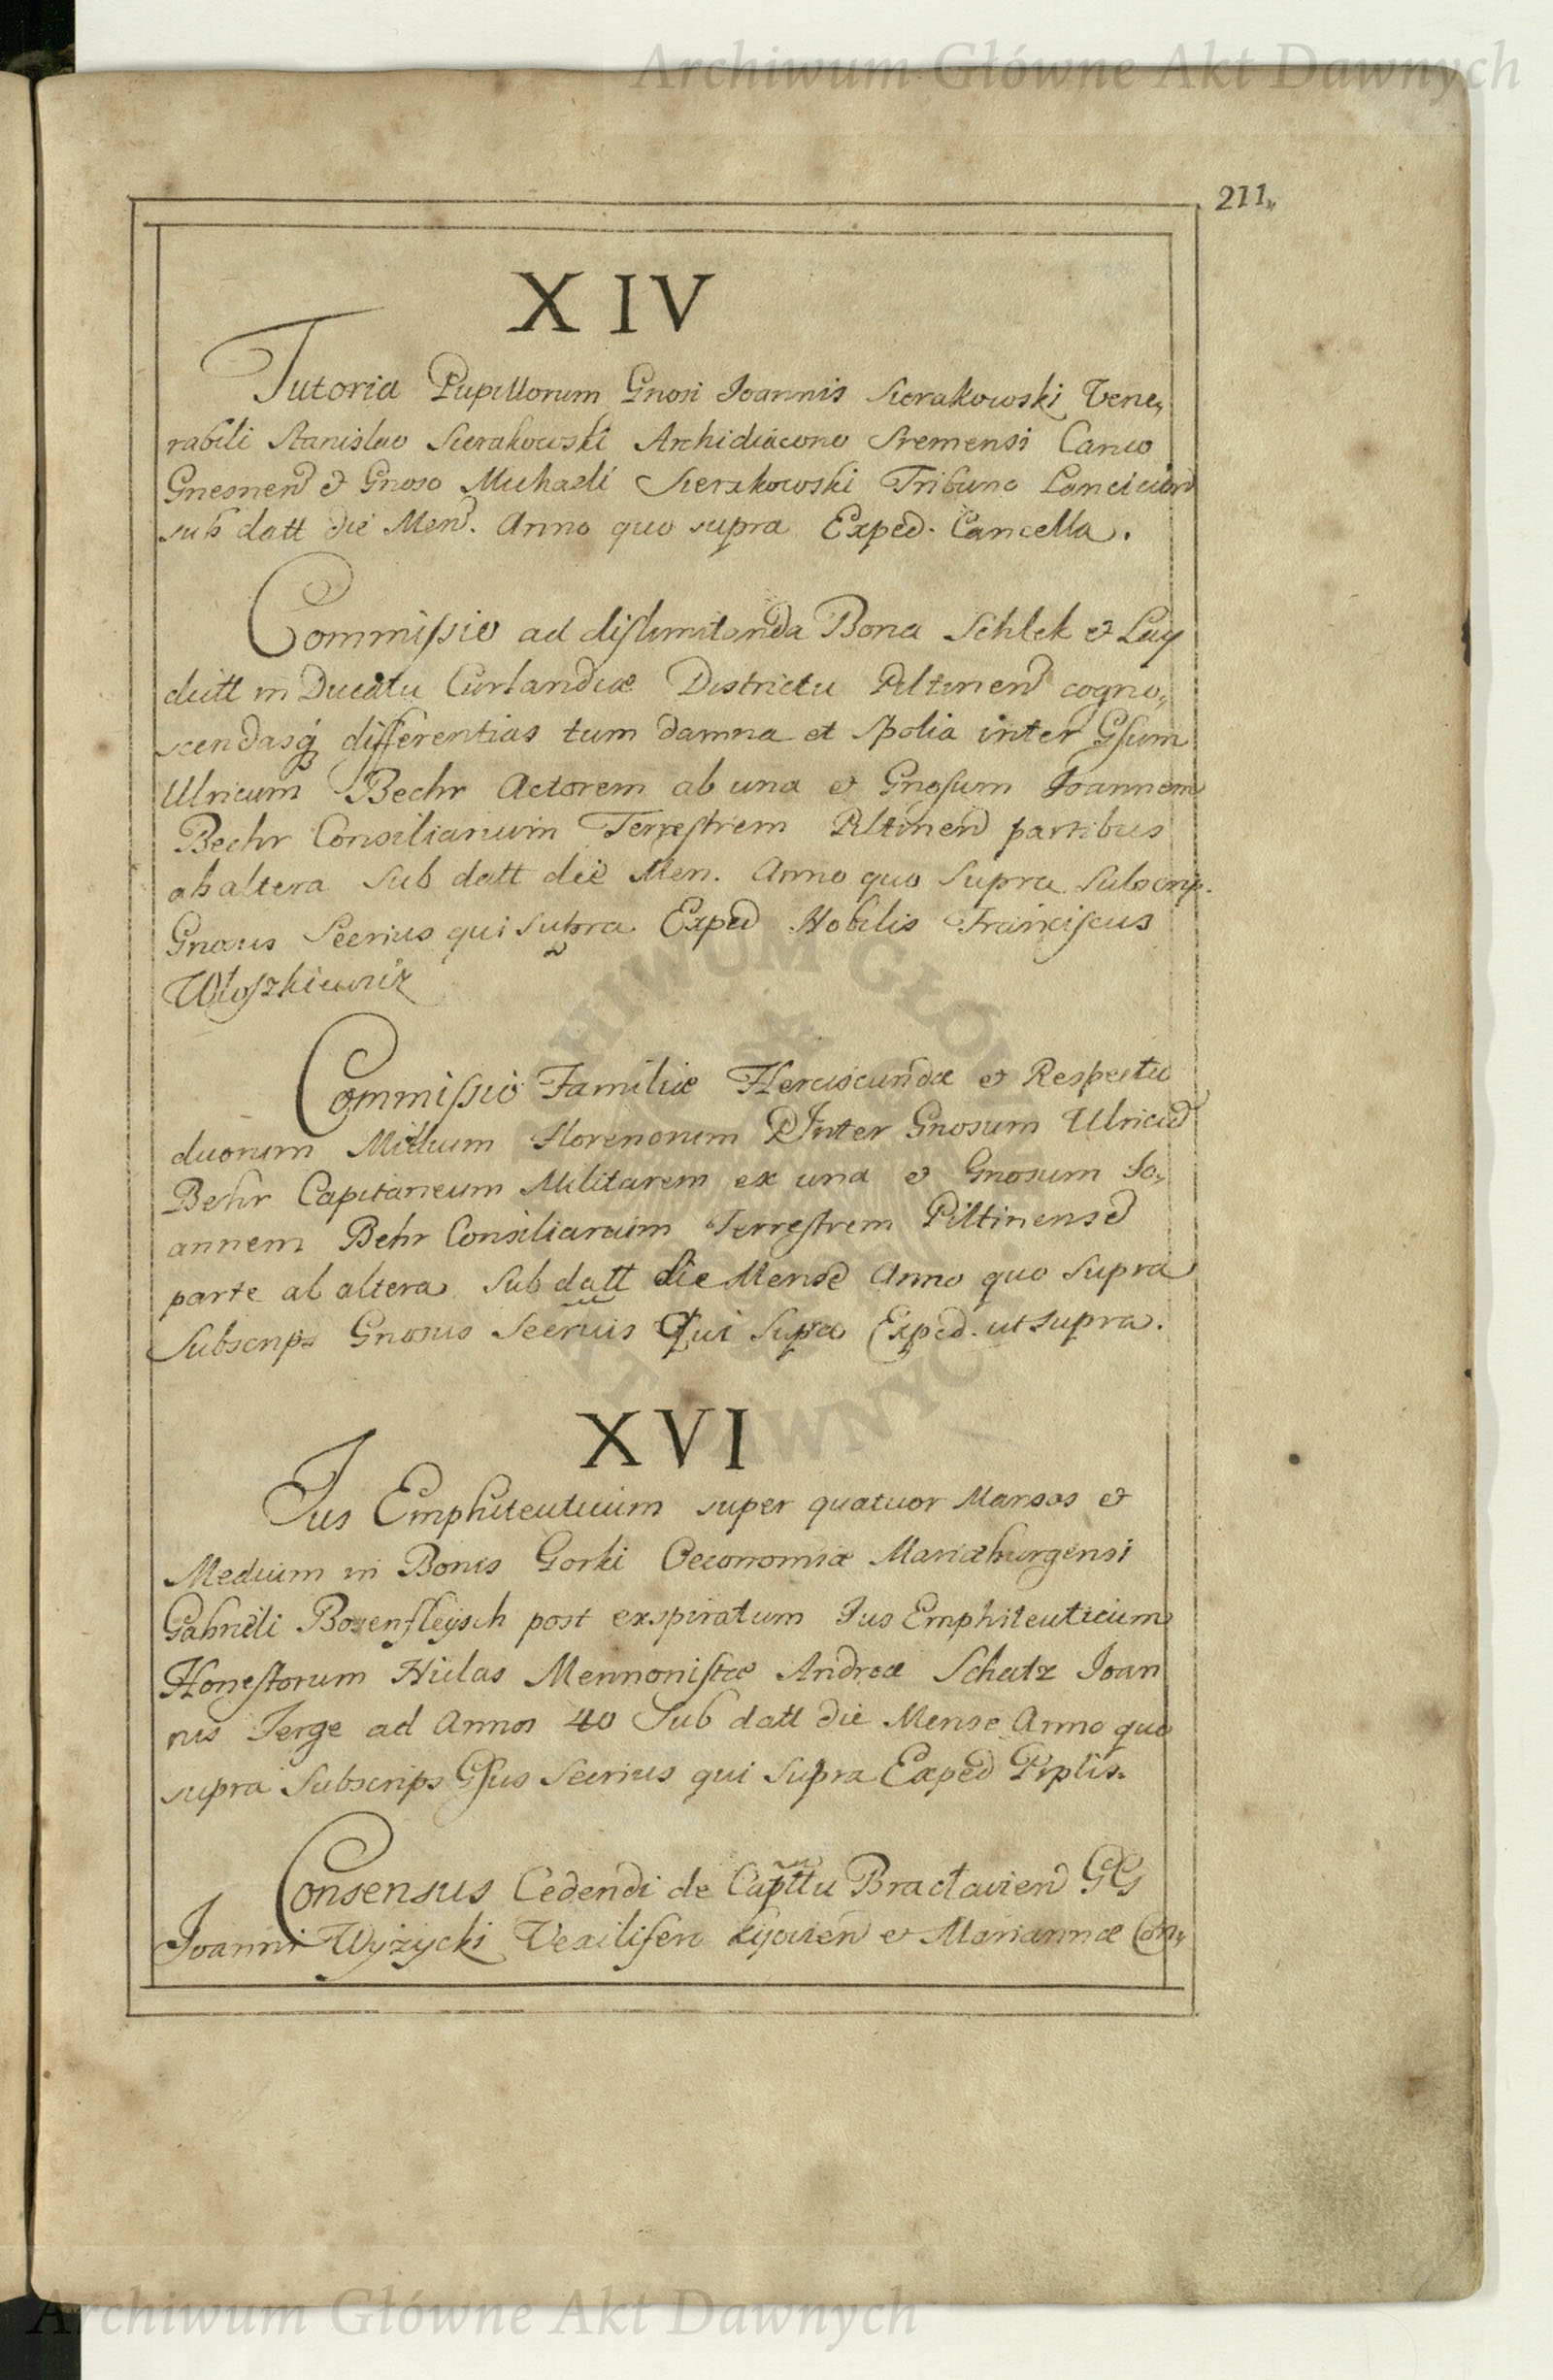 Archiwum Główne Akt Dawnych
211.
XIV
Tutoria Pupillorum Gnosi Joannis Sierakowski Vene,
rabili Stanislao Sierakowski Archidiacono Sremensi Canco
Gnesnen et Gnoso Michaeli Sierakowski Tribuno Lancicien
sub datt die Men. Anno quo supra Exped. Cancella.
Commissio ad dislimitanda Bona Schlek et Lay
dutt in Ducatu Curlandiæ Districtu Piltinen cogno,
scendasq differentias tum damna et spolia inter Gsum
Ulricum Bechr Actorem ab una et Gnosum Joannem
Bechr Consiliarium Terrestrem Piltinen partibus
ab altera sub datt die Men. Anno quo supra Subscrip.
Gnosus Secrius qui supra Exped Nobilis Franciscus
Włoszkiewicz
Commissio Familiæ Herciscundæ et Respectu
duorum Millium florenorum P Inter Gnosum Ulricu
Behr Capitaneum Militarem ex una et Gnosum Jo,
annem Behr Consiliarium Terrestrem Piltinense
parte ab altera Sub datt die Mense Anno quo supra
Subscrip Gnosus Secrius Qui Supra Exped. ut supra.
XVI
Jus Emphiteuticum super quatuor Mansos et
Medium in Bonis Gorki Oeconomiæ Mariæburgensi
Gabrieli Bozenfleysch post exspiratum Jus Emphiteuticum
Honestorum Hielas Mennonistæ Andreæ Schatz Joan
nis Jerge ad Annos 40 Sub datt die Mense Anno quo
supra Subscrips Gsus Secrius qui Supra Exped Prplis.
Consensus Cedendi de Capttu Braclavien GG
Joanni Wyżycki Vexilifero Kijovien et Mariannæ Con,
Archiwum Główne Akt Dawnych